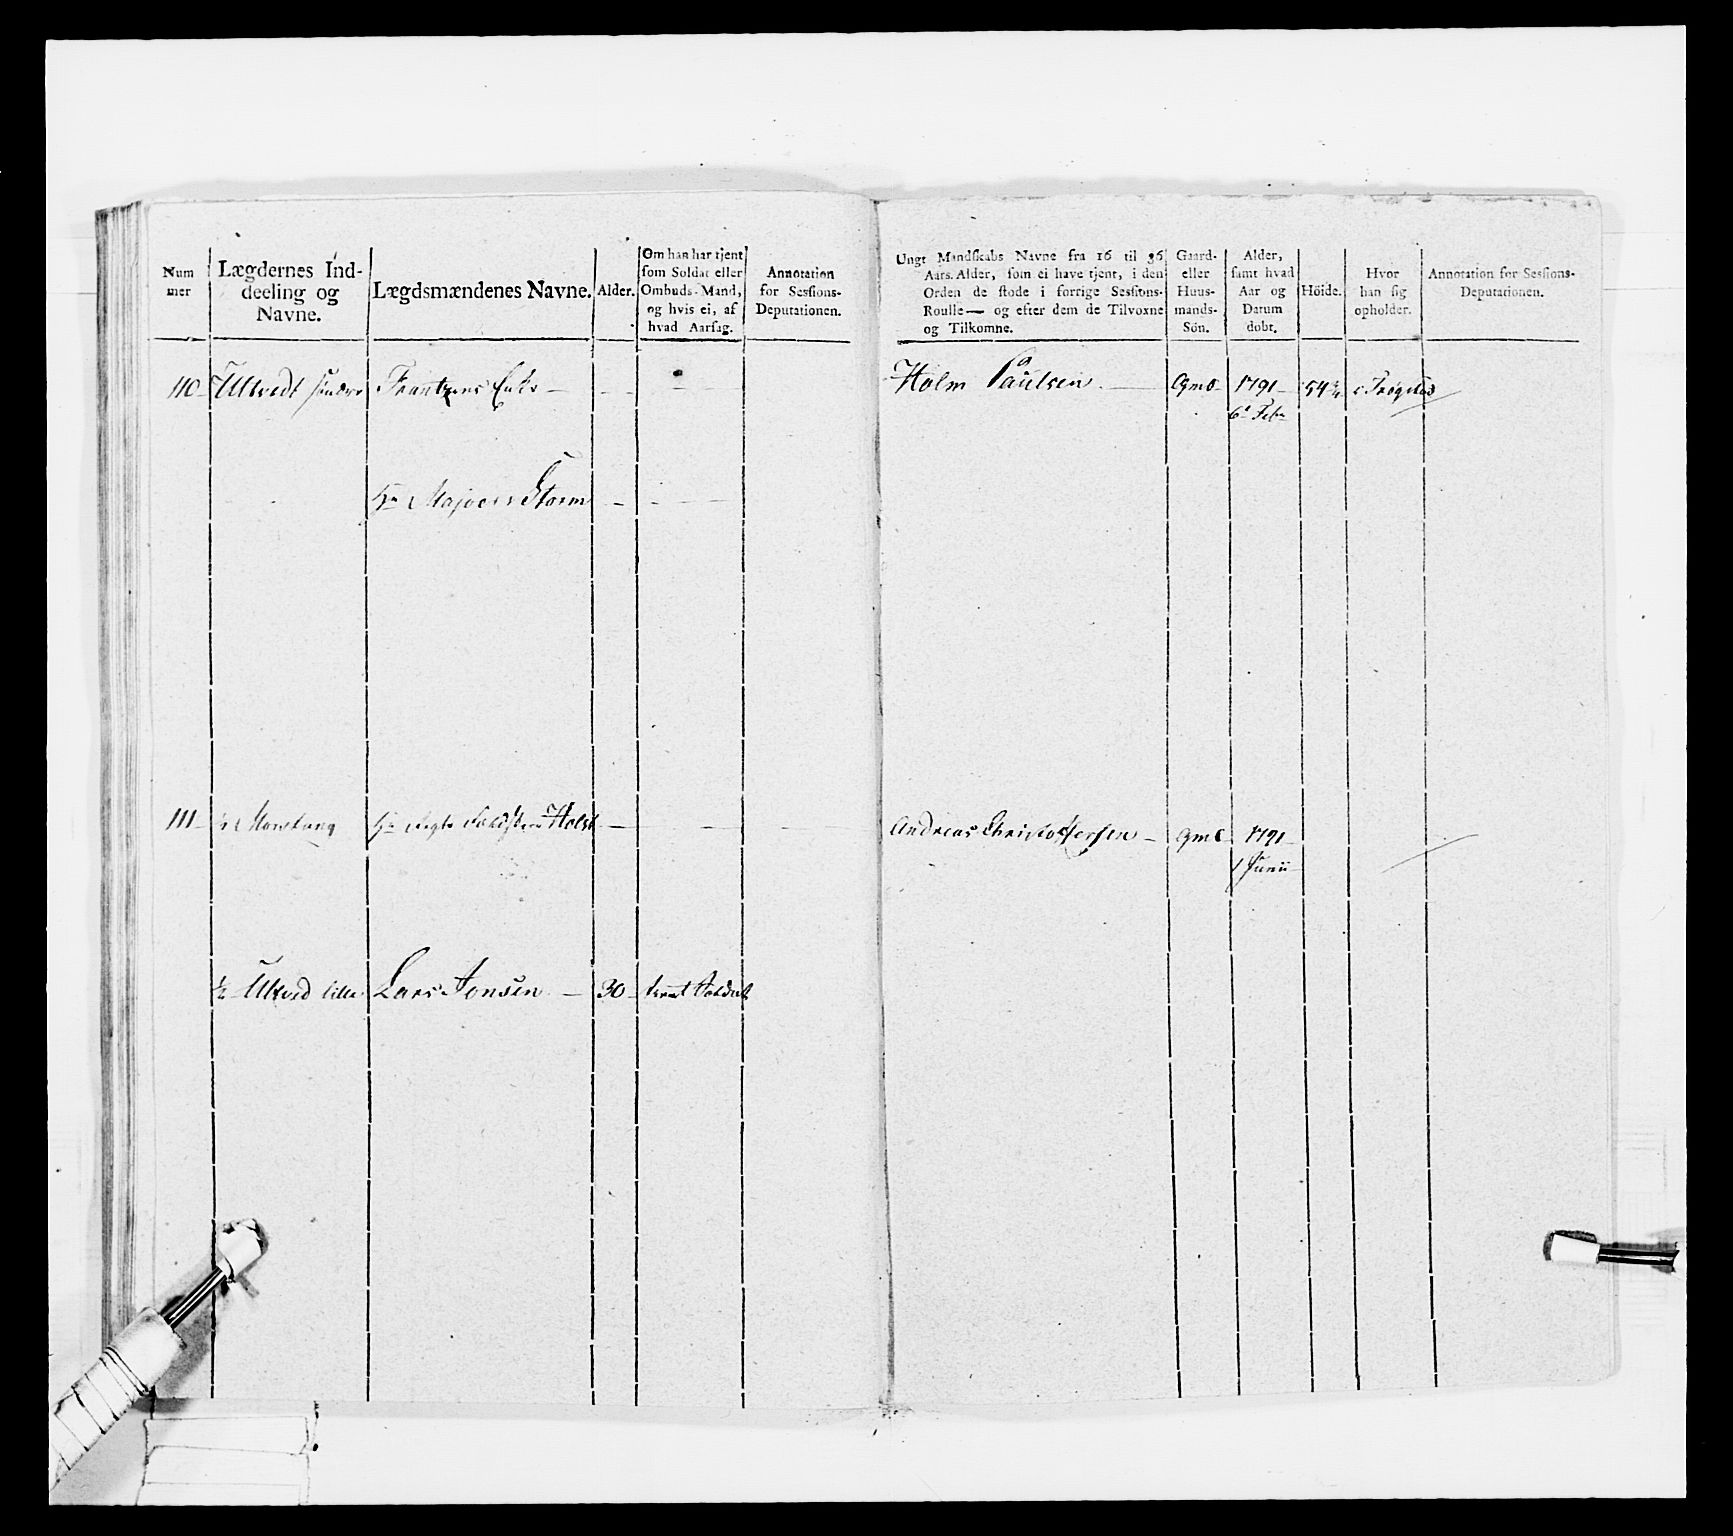 Num
mer
Lægdernes Ind-
deeling og
Navne.
Lægdsmændenes Navne.
Alder.
Om han har tjent
som Soldat eller
Ombuds-Mand,
og hvis ei, af
hvad Aarsag.
Annotation
for Sessions-
Deputationen.
Ungt Mandskabs Navne fra 16 til 36
Aars Alder, som ei have tjent, i den
Orden de stode i forrige Sessions-
Roulle— og efter dem de Tilvoxne
og Tilkomne.
Gaard-
eller
Huus-
mands-
Sön.
Alder,
samt hvad
Aar og
Datum
dobt.
Höide.
Hvor
han sig
opholder.
Annotation for Sessions-
Deputationen.
110 Ultvedt søndre Frantzens Enke — Holm Paulsen — Gmd 1791 54¾ i Trøgstad
6t Febr
Hr Majoer Storm
111 Hr Holst — Andreas Christoffersen — Gmd 1791
1 Junii
½ Ultved lille Lars Jonsen — 30 tient Soldat